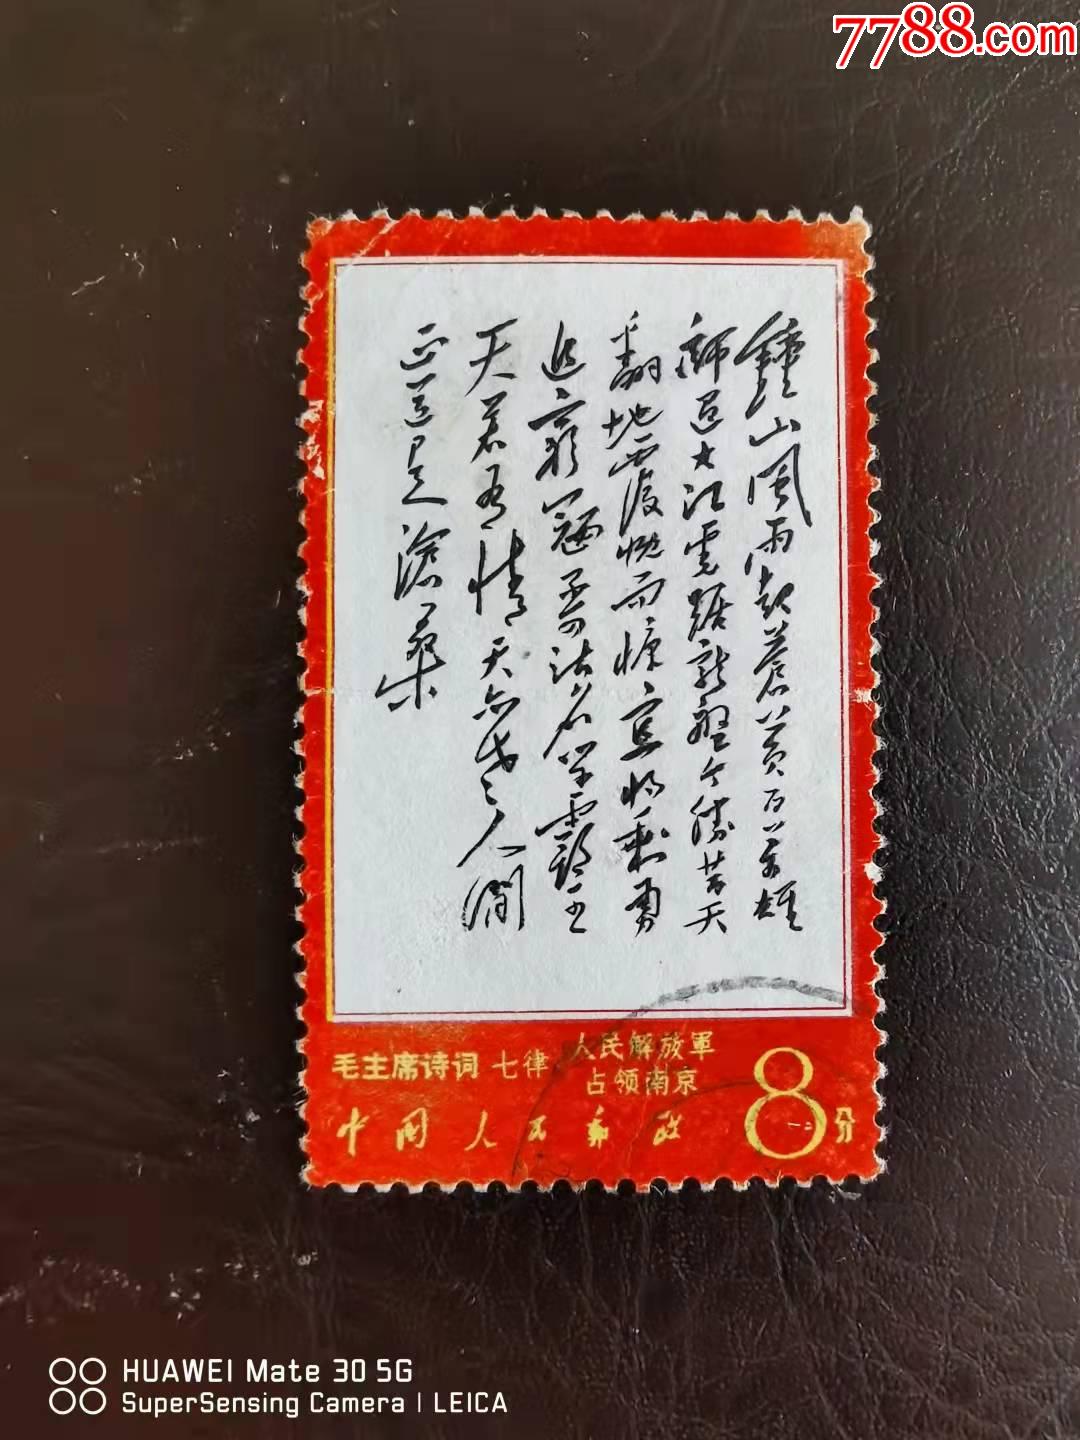 7788.com
鐘山風雨起蒼黃百萬雄
師過大江虎踞龍盤今勝昔天
翻地覆慨而慷宜將剩勇
追窮寇不可沽名學霸王
天若有情天亦老人間
正道是滄桑
毛主席诗词 七律 人民解放軍
占领南京
中国人民邮政
8分
HUAWEI Mate 30 5G
SuperSensing Camera | LEICA